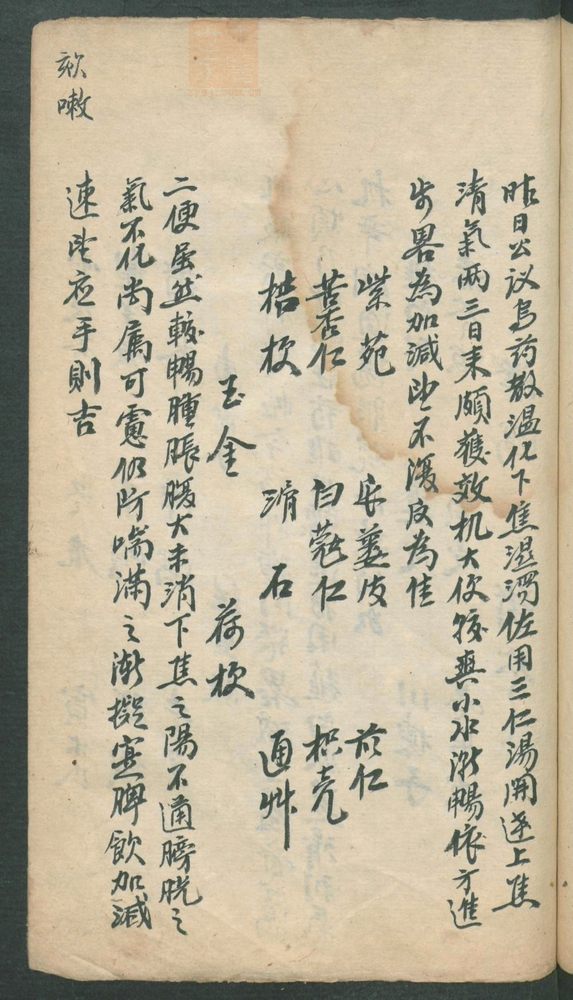 欬嗽
昨日公议乌药散温化下焦湿濁佐用三仁湯開逐上焦
清氣两三日来頗獲效机大便較爽小水渐暢依方進
步畧為加減望不復反為佳
紫苑 瓜蔞皮 苡仁
苦杏仁 白蔻仁 枳壳
桔梗 滑石 通艸
玉金 荷梗
二便虽然較暢腫脹腹大未消下焦之陽不通膀胱之
氣不化尚属可慮仍防喘滿之渐擬實脾飲加減
速望应手則吉